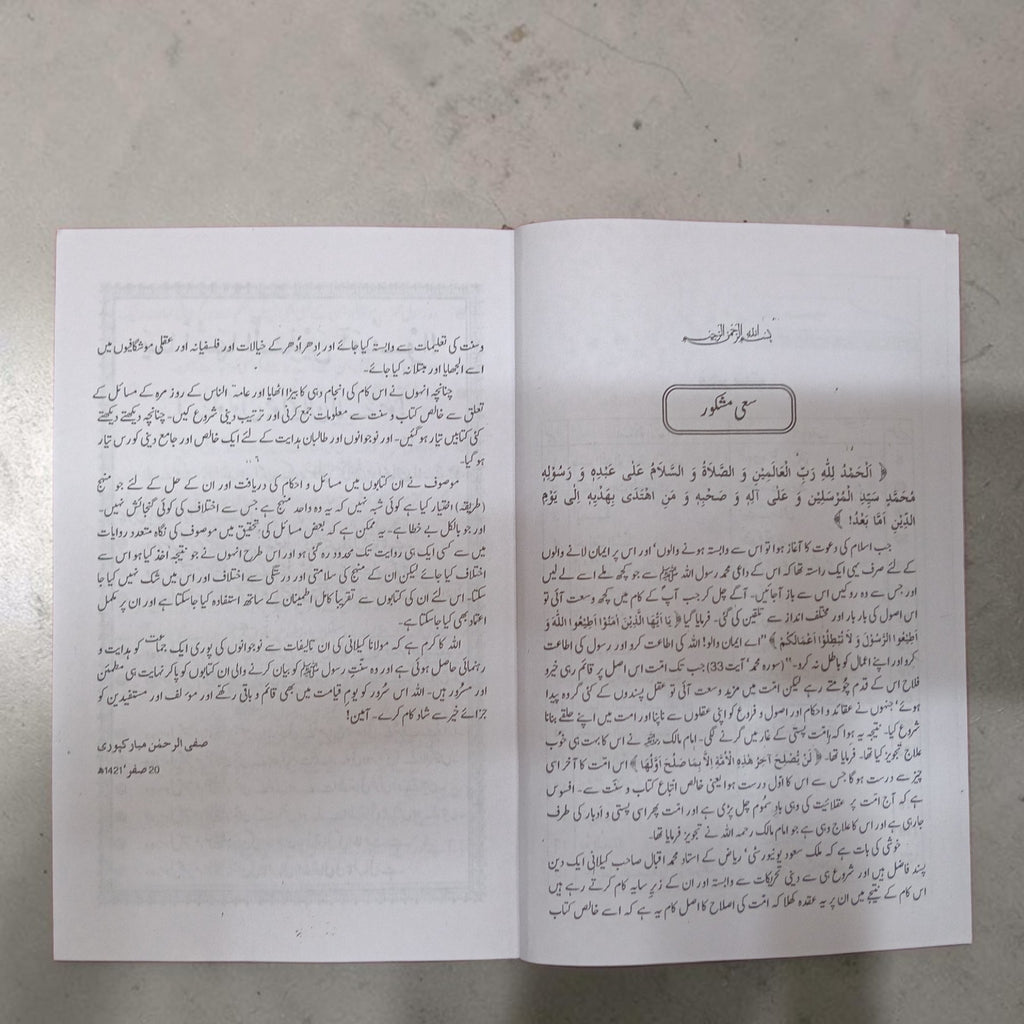 بسم اللہ الرحمن الرحیم
سعی مشکور
﴿ اَلْحَمْدُ لِلّٰهِ رَبِّ الْعَالَمِيْنَ وَ الصَّلاَةُ وَ السَّلاَمُ عَلٰى عَبْدِهٖ وَ رَسُوْلِهٖ
مُحَمَّدٍ سَيِّدِ الْمُرْسَلِيْنَ وَ عَلٰى آلِهٖ وَ صَحْبِهٖ وَ مَنِ اهْتَدٰى بِهَدْيِهٖ اِلٰى يَوْمِ
الدِّيْنِ اَمَّا بَعْدُ! ﴾
جب اسلام کی دعوت کا آغاز ہوا تو اس سے وابستہ ہونے والوں' اور اس پر ایمان لانے والوں
کے لئے صرف یہی ایک راستہ تھا کہ اس کے داعی محمد رسول اللہ ﷺ سے جو کچھ ملے اسے لے لیں
اور جس سے وہ روکیں اس سے باز آجائیں۔ آگے چل کر جب آپ کے کام میں کچھ وسعت آئی تو
اس اصول کی بار بار اور مختلف انداز سے تلقین کی گئی۔ فرمایا گیا ﴿ يَا اَيُّهَا الَّذِيْنَ اٰمَنُوْا اَطِيْعُوا اللّٰهَ وَ
اَطِيْعُوا الرَّسُوْلَ وَ لاَ تُبْطِلُوْا اَعْمَالَكُمْ ﴾ "اے ایمان والو! اللہ کی اطاعت کرو اور رسول کی اطاعت
کرو اور اپنے اعمال کو باطل نہ کرو۔" (سورہ محمد' آیت 33) جب تک امت اس اصل پر قائم رہی خیر و
فلاح اس کے قدم چُومتے رہے لیکن امت میں مزید وسعت آئی تو عقل پسندوں کے کئی گروہ پیدا
ہوئے' جنہوں نے عقائد و احکام اور اصول و فروع کو اپنی عقلوں سے ناپنا اور امت میں اپنے حلقے بنانا
شروع کیا۔ نتیجہ یہ ہوا کہ امت پستی کے غار میں گرنے لگی۔ امام مالک رحمہ اللہ نے اس کا بہت ہی خوب
علاج تجویز کیا تھا۔ فرمایا تھا۔ ﴿ لَنْ يُصْلِحَ آخِرَ هٰذِهِ الْاُمَّةِ اِلاَّ بِمَا صَلُحَ اَوَّلُهَا ﴾ اس امت کا آخر اسی
چیز سے درست ہوگا جس سے اس کا اول درست ہوا یعنی خالص اتباع کتاب و سنّت سے۔ افسوس
ہے کہ آج امت پر عقلائیت کی وہی بادِ سموم چل پڑی ہے اور امت پھر اسی پستی و ادبار کی طرف
جارہی ہے اور اس کا علاج وہی ہے جو امام مالک رحمہ اللہ نے تجویز فرمایا تھا۔
خوشی کی بات ہے کہ ملک سعود یونیورسٹی' ریاض کے استاد محمد اقبال صاحب کیلانی ایک دین
پسند فاضل ہیں اور شروع ہی سے دینی تحریکات سے وابستہ اور ان کے زیر سایہ کام کرتے رہے ہیں
اس کام کے نتیجے میں ان پر یہ عقدہ کھلا کہ امت کی اصلاح کا اصل کام یہ ہے کہ اسے خالص کتاب
و سنت کی تعلیمات سے وابستہ کیا جائے اور اِدھر اُدھر کے خیالات اور فلسفیانہ اور عقلی موشگافیوں میں
اسے الجھایا اور مبتلا نہ کیا جائے۔
چنانچہ انہوں نے اس کام کی انجام دہی کا بیڑا اٹھایا اور عامۃ الناس کے روز مرہ کے مسائل کے
تعلق سے خالص کتاب و سنت سے معلومات جمع کرنی اور ترتیب دینی شروع کیں۔ چنانچہ دیکھتے دیکھتے
کئی کتابیں تیار ہوگئیں۔ اور نوجوانوں اور طالبان ہدایت کے لئے ایک خالص اور جامع دینی کورس تیار
ہو گیا۔
موصوف نے ان کتابوں میں مسائل و احکام کی دریافت اور ان کے حل کے لئے جو منہج
(طریقہ) اختیار کیا ہے کوئی شبہ نہیں کہ یہ وہ واحد منہج ہے جس سے اختلاف کی کوئی گنجائش نہیں۔
اور جو بالکل بے خطا ہے۔ یہ ممکن ہے کہ بعض مسائل کی تحقیق میں موصوف کی نگاہ متعدد روایات
میں سے کسی ایک ہی روایت تک محدود رہ گئی ہو اور اس طرح انہوں نے جو نتیجہ اخذ کیا ہو اس سے
اختلاف کیا جائے لیکن ان کے منہج کی سلامتی اور درستگی سے اختلاف اور اس میں شک نہیں کیا جا
سکتا۔ اس لئے ان کی کتابوں سے تقریباً کامل اطمینان کے ساتھ استفادہ کیا جاسکتا ہے اور ان پر مکمل
اعتماد بھی کیا جاسکتا ہے۔
اللہ کا کرم ہے کہ مولانا کیلانی کی ان تالیفات سے نوجوانوں کی پوری ایک جماعت کو ہدایت و
رہنمائی حاصل ہوئی ہے اور وہ سنّتِ رسول ﷺ کو بیان کرنے والی ان کتابوں کو پاکر نہایت ہی مطمئن
اور مسرور ہیں۔ اللہ اس سُرور کو یومِ قیامت میں بھی قائم و باقی رکھے اور مؤلف اور مستفیدین کو
جزائے خیر سے شاد کام کرے۔ آمین!
صفی الرحمٰن مبارکپوری
20 صفر' 1421ھ